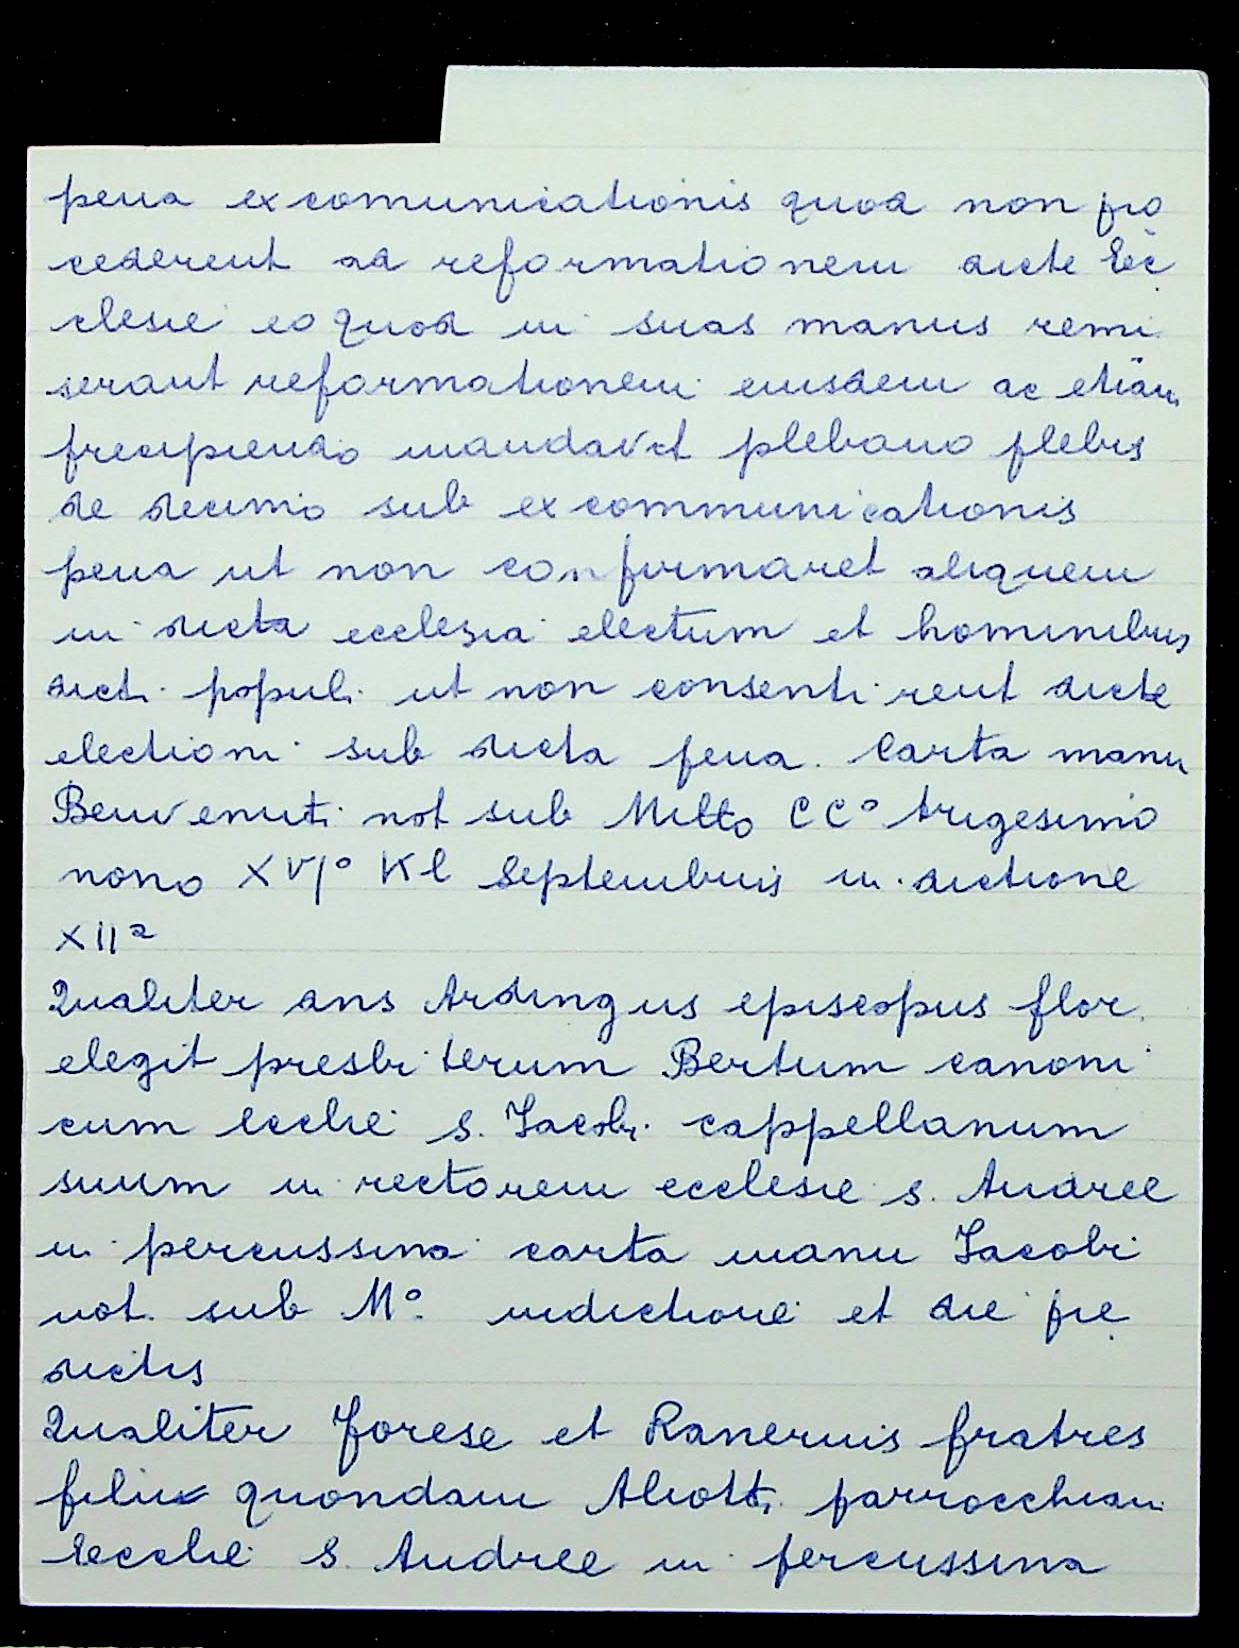 pena excomunicationis quod non pro
cederent ad reformationem dicte Ec
clesie eo quod in suas manus remi
serant reformationem eiusdem ac etiam
precipiendo mandavit plebano plebis
de decimo sub excommunicationis
pena ut non confirmaret aliquem
in dicta ecclesia electum et hominibus
dicti populi ut non consentirent dicte
electioni sub dicta pena. Carta manu
Benvenuti not sub Millo CC° trigesimo
nono XVI° Kl Septembris indictione
XII a
Qualiter dns Ardingus episcopus flor.
elegit presbiterum Bertum canoni
cum Ecclie s. Jacobi cappellanum
suum in rectorem ecclesie s. Andree
in percussina carta manu Jacobi
not. sub M°. indictione et die pre
dictis
Qualiter Forese et Ranerius fratres
filii quondam Aliotti parrocchiani
Ecclie S. Andree in percussina